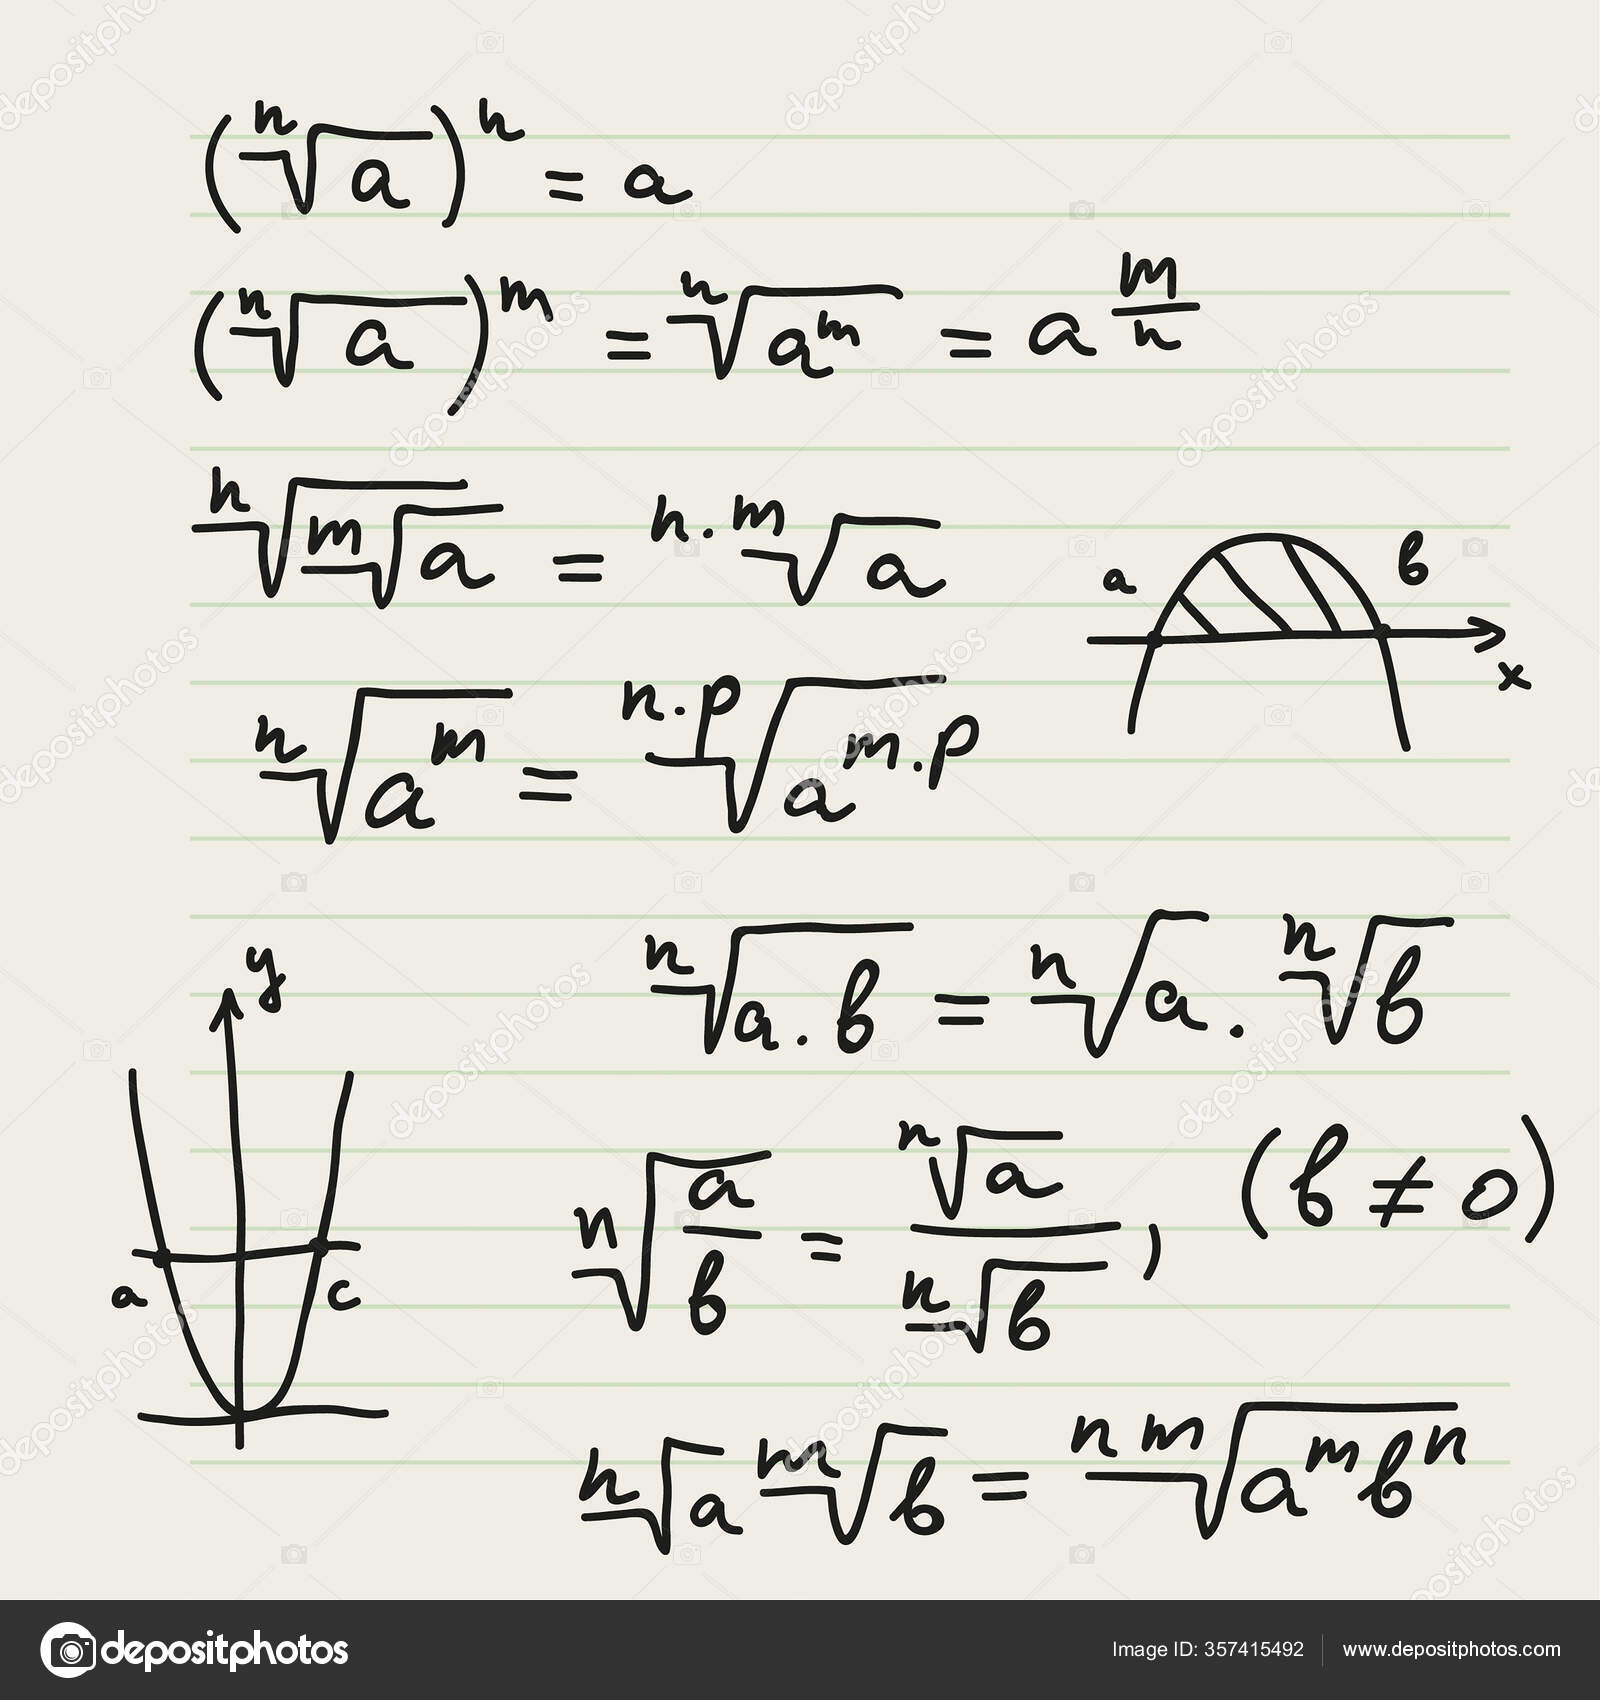 (ⁿ√a)ⁿ = a
(ⁿ√a)ᵐ = ⁿ√aᵐ = a^(m/n)
ⁿ√ᵐ√a = ⁿ·ᵐ√a
a b
x
ⁿ√aᵐ = ⁿ·ᵖ√aᵐ·ᵖ
ⁿ√a·b = ⁿ√a · ⁿ√b
y
ⁿ√(a/b) = ⁿ√a / ⁿ√b, (b ≠ 0)
a c
ⁿ√a ᵐ√b = ⁿᵐ√aᵐbⁿ
depositphotos
Image ID: 357415492 www.depositphotos.com